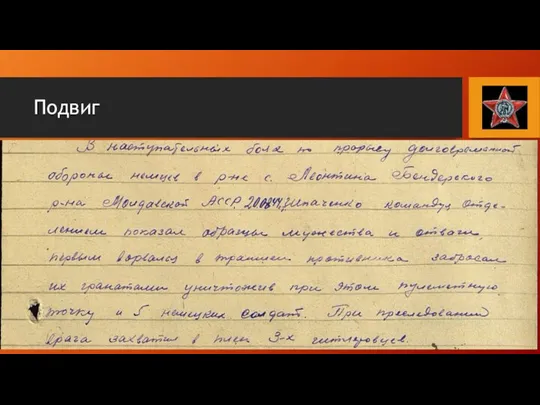 Подвиг
В наступательных боях по прорыву долговременной
обороны немцев в р-не с. Леонтина Бендерского
р-на Молдавской АССР 20.08.44 командуя отде-
лением показал образцы мужества и отваги,
первым ворвался в траншеи противника забросал
их гранатами уничтожив при этом пулеметную
точку и 5 немецких солдат. При преследовании
врага захватил в плен 3-х гитлеровцев.